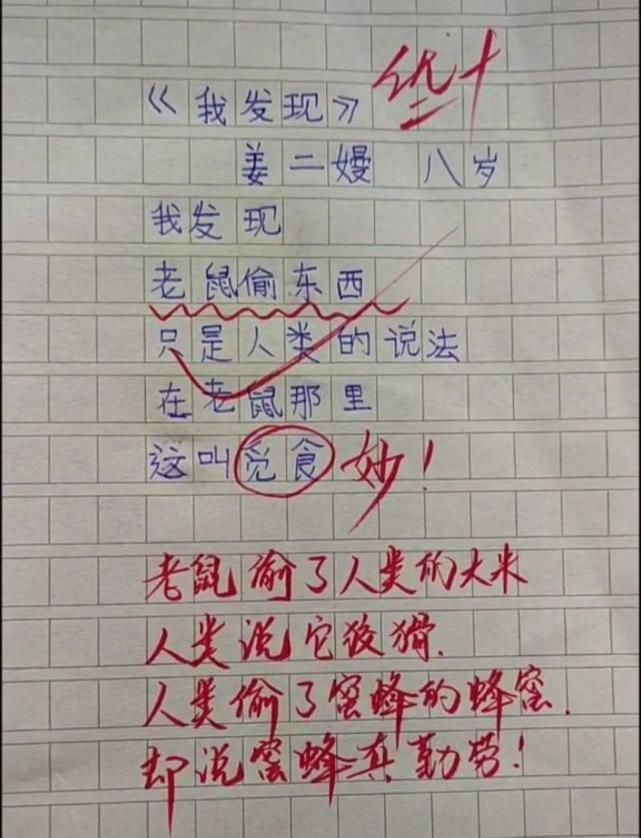 《我发现》 优+
姜二嫚 八岁
我发现
老鼠偷东西
只是人类的说法
在老鼠那里
这叫觅食 妙！
老鼠偷了人类的大米
人类说它狡猾.
人类偷了蜜蜂的蜂蜜.
却说蜜蜂真勤劳！